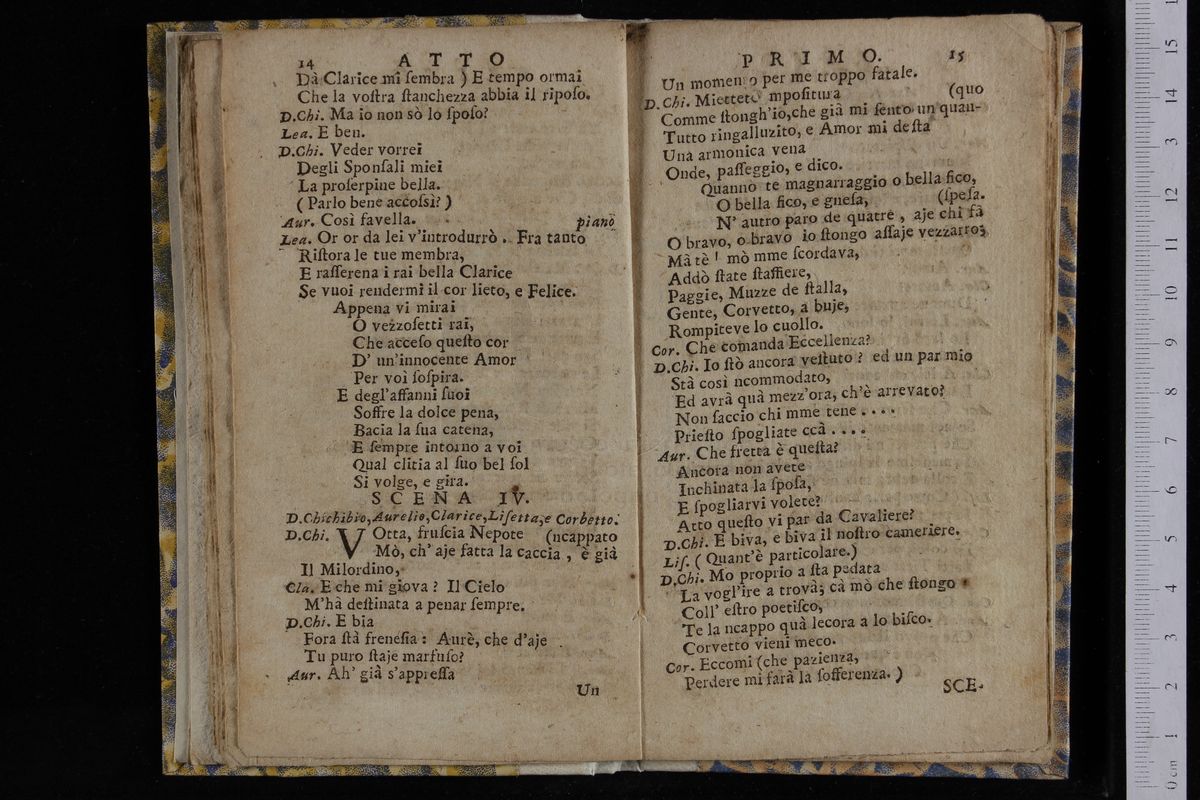 14 ATTO
Dà Clarice mi ſembra ) E tempo ormai
Che la voſtra ſtanchezza abbia il ripoſo.
D.Chi. Ma io non sò lo ſpoſo?
Lea. E ben.
D.Chi. Veder vorrei
Degli Sponſali miei
La proſerpine bella.
( Parlo bene accoſsì? )
Aur. Così favella. piano
Lea. Or or da lei v'introdurrò. Fra tanto
Riſtora le tue membra,
E raſſerena i rai bella Clarice
Se vuoi rendermi il cor lieto, e Felice.
Appena vi mirai
O vezzoſetti rai,
Che acceſo queſto cor
D' un'innocente Amor
Per voi ſoſpira.
E degl'affanni ſuoi
Soffre la dolce pena,
Bacia la ſua catena,
E ſempre intorno a voi
Qual clitia al ſuo bel ſol
Si volge, e gira.
SCENA IV.
D.Chichibio, Aurelio, Clarice, Liſetta, e Corbetto.
D.Chi. VOtta, fruſcia Nepote (ncappato
Mò, ch' aje fatta la caccia, è già
Il Milordino,
Cla. E che mi giova ? Il Cielo
M'hà deſtinata a penar ſempre.
D.Chi. E bia
Fora ſtà freneſia : Aurè, che d'aje
Tu puro ſtaje marfuſo?
Aur. Ah' già s'appreſſa
Un
PRIMO. 15
Un momento per me troppo fatale.
D.Chi. Miettete mpoſitura (quo
Comme ſtongh'io, che già mi ſento un quan-
Tutto ringalluzito, e Amor mi deſta
Una armonica vena
Onde, paſſeggio, e dico.
Quanno te magnarraggio o bella fico,
O bella fico, e gneſa, (ſpeſa.
N' autro paro de quatre, aje chi fà
O bravo, o bravo io ſtongo aſſaje vezzarro;
Mà tè ! mò mme ſcordava,
Addò ſtate ſtaffiere,
Paggie, Muzze de ſtalla,
Gente, Corvetto, a buje,
Rompiteve lo cuollo.
Cor. Che comanda Eccellenza?
D.Chi. Io ſtò ancora veſtuto ? ed un par mio
Stà così ncommodato,
Ed avrà quà mezz'ora, ch'è arrevato?
Non ſaccio chi mme tene . . . .
Prieſto ſpogliate ccà . . . .
Aur. Che fretta è queſta?
Ancora non avete
Inchinata la ſpoſa,
E ſpogliarvi volete?
Atto queſto vi par da Cavaliere?
D.Chi. E biva, e biva il noſtro cameriere.
Liſ. ( Quant'è particolare.)
D.Chi. Mo proprio a ſta pedata
La vogl'ire a trovà; cà mò che ſtongo
Coll' eſtro poetiſco,
Te la ncappo quà lecora a lo biſco.
Corvetto vieni meco.
Cor. Eccomi (che pazienza,
Perdere mi farà la ſofferenza. )
SCE-